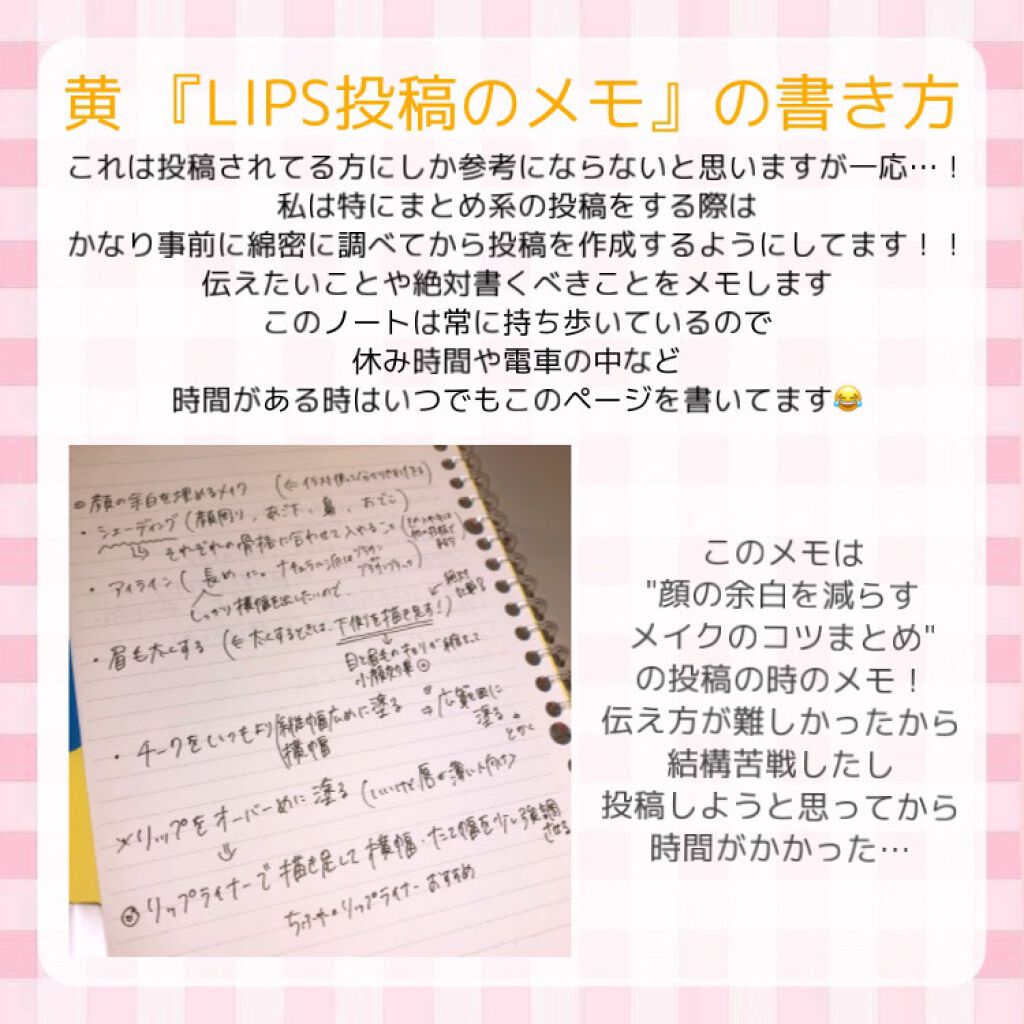 黄 『LIPS投稿のメモ』の書き方
これは投稿されてる方にしか参考にならないと思いますが一応…！
私は特にまとめ系の投稿をする際は
かなり事前に綿密に調べてから投稿を作成するようにしてます！！
伝えたいことや絶対書くべきことをメモします
このノートは常に持ち歩いているので
休み時間や電車の中など
時間がある時はいつでもこのページを書いてます😂
顔の余白を埋めるメイク (⇐イラスト使って分かりやすくする)
・シェーディング(顔周り、あご下、鼻、おでこ)
↳ それぞれの骨格に合わせて入れること
・アイライン( 長めに。ナチュラル派はブラウン
しっかり横幅を出したいので、
・眉毛太くする (⇐太くするときは、下側を描き足す!)
↓
目と眉毛のキョリが縮まって
小顔効果◎
・チークをいつもより縦幅広めに塗る ⇒広範囲に
横幅
塗る
とかく
×リップをオーバーめに塗る (いいけど唇が薄い人向け)
⇓
◎リップライナーで描き足して横幅・たて幅を少し強調
させる
ちふれのリップライナーおすすめ
このメモは
"顔の余白を減らす
メイクのコツまとめ"
の投稿の時のメモ！
伝え方が難しかったから
結構苦戦したし
投稿しようと思ってから
時間がかかった…